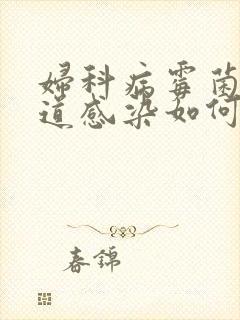 婦科病霉菌
道感染如何
春錦